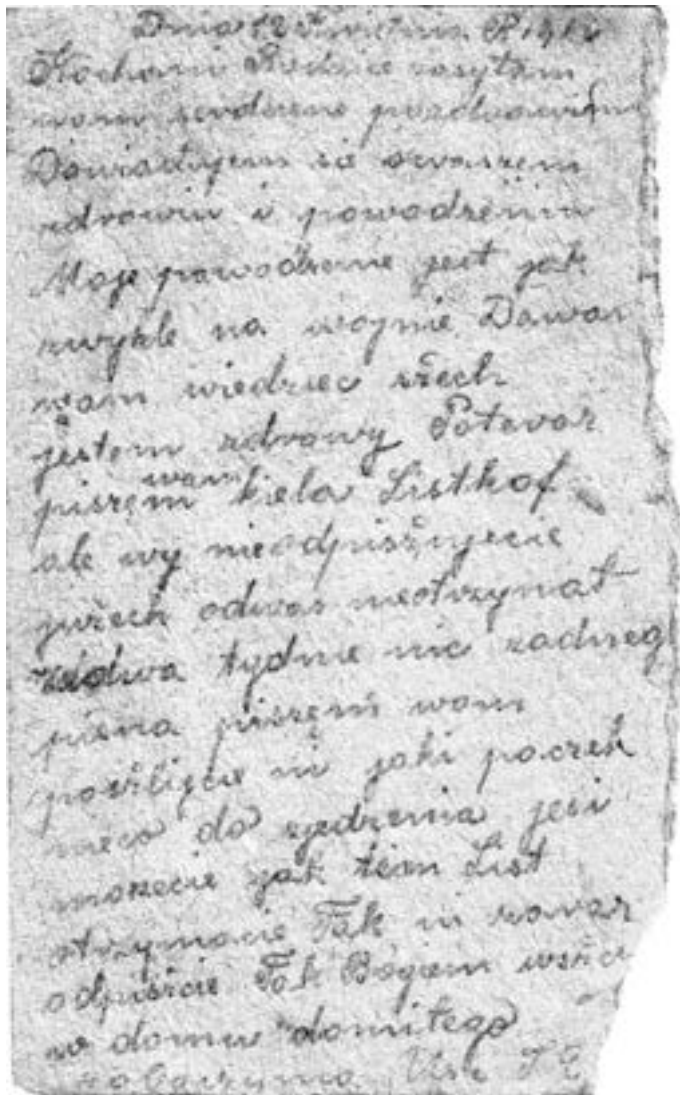 Dnia 12 Kwietnia R 191
Kochani Rodzice zasyłam
wam serdeczne pozdrowieni
Dowiadujem sie owaszem
zdrowiu i powodzeniu
Moje powodzenie jest jak
zwykle na wojnie Dawam
wam wiedziec zžech
jestem zdrowy Poteraz
piszem wam kiela Listkof
ale wy nieodpisžujecie
jużech odwas nieotrzymał
zadwa tydnie nic zadneg
pisma piszem wam
poszlijcie mi jaki paczek
nieco do zjedzenia jesi
mozecie jak ten List
otrzymacie Tak mi zaraz
odpiszcie Tak Bogiem wszci
w domu domiłego
zobaczynia